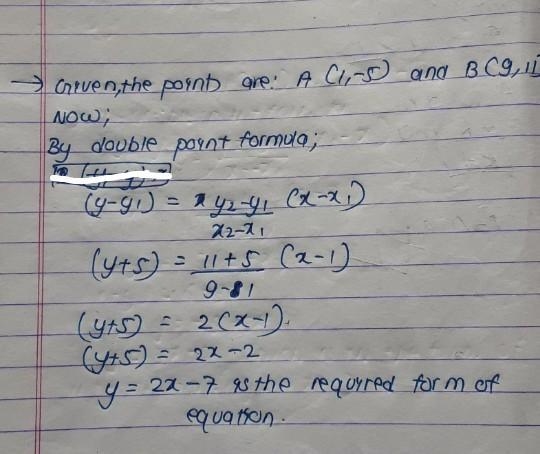 → Given, the points are: A (1,-5) and B (9, 11
Now;
By double point formula;
(y-y1) = y2-y1 (x-x1)
x2-x1
(y+5) = 11+5 (x-1)
9-1
(y+5) = 2(x-1).
(y+5) = 2x-2
y = 2x-7 is the required form of
equation.